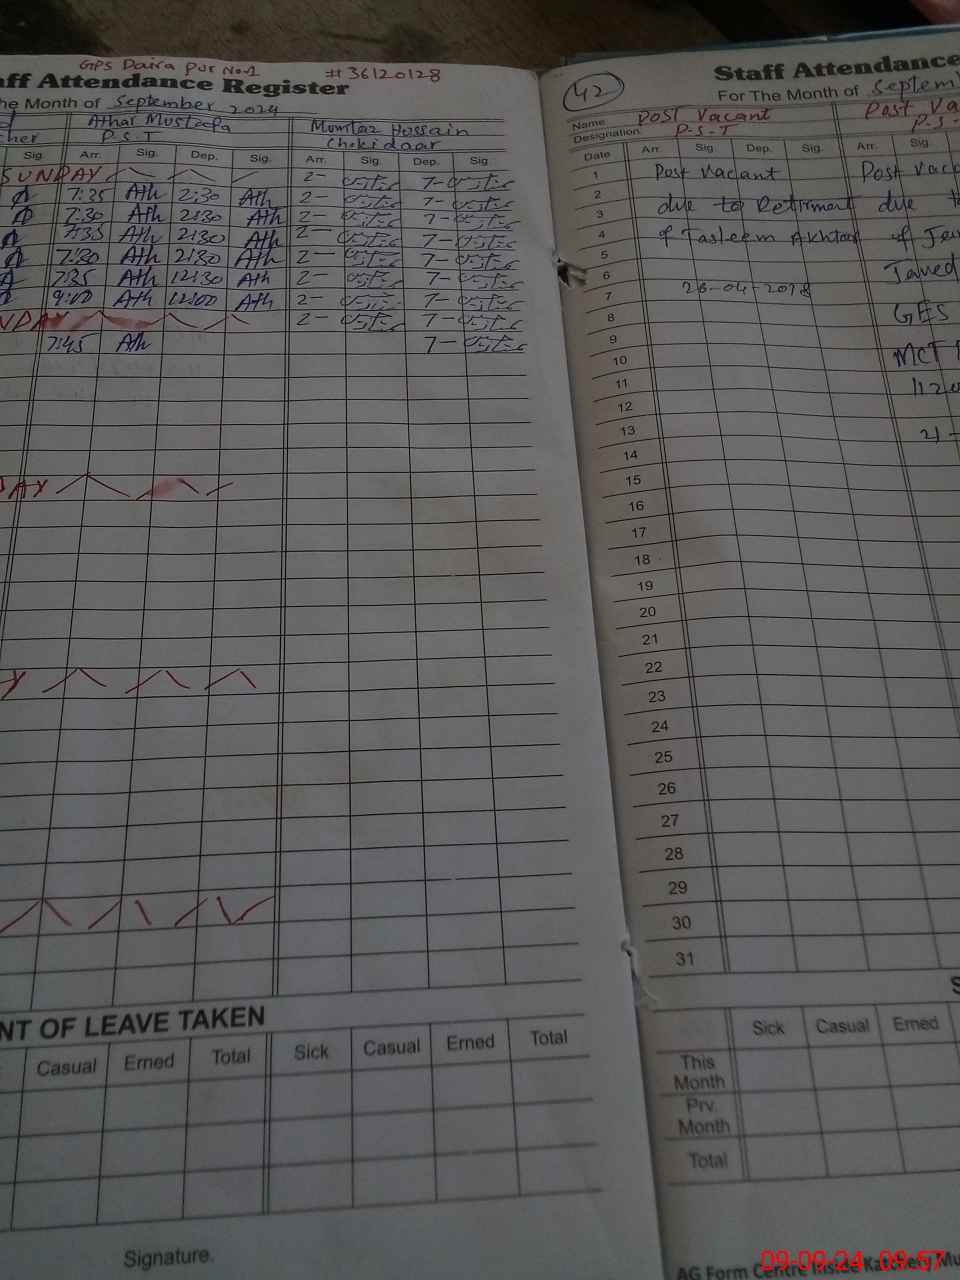 GPS Daira Pur No.1 # 36120128
aff Attendance Register
he Month of September 2024
Athar Mustafa Mumtaz Hussain
cher P.S.T Chokidaar
Sig. Arr. Sig. Dep. Sig. Arr. Sig. Dep. Sig.
SUNDAY 2- 7-
7:35 Ath 2:30 Ath 2- 7-
7:30 Ath 2:30 Ath 2- 7-
7:35 Ath 2:30 Ath 2- 7-
7:30 Ath 2:30 Ath 2- 7-
7:35 Ath 12:30 Ath 2- 7-
9:00 Ath 12:00 Ath 2- 7-
NDAY 2- 7-
7:45 Ath 7-
DAY
Y
NT OF LEAVE TAKEN
Casual Erned Total Sick Casual Erned Total
Signature.
42
Staff Attendance
For The Month of Septem
Name Post Vacant Post Va
Designation P-S-T P-S-
Date Arr. Sig Dep. Sig. Arr. Sig.
1 Post Vacant Post Vac
2
3 due to Retirment due t
4 of Tasleem Akhtar of
5
6 Javed
7 28-04-2018
8 GES
9
10 MCT
11 112
12
13 21-
14
15
16
17
18
19
20
21
22
23
24
25
26
27
28
29
30
31
S
Sick Casual Erned
This
Month
Prv.
Month
Total
AG Form Centre Inside Katchery Mu
09-09-24 09:57